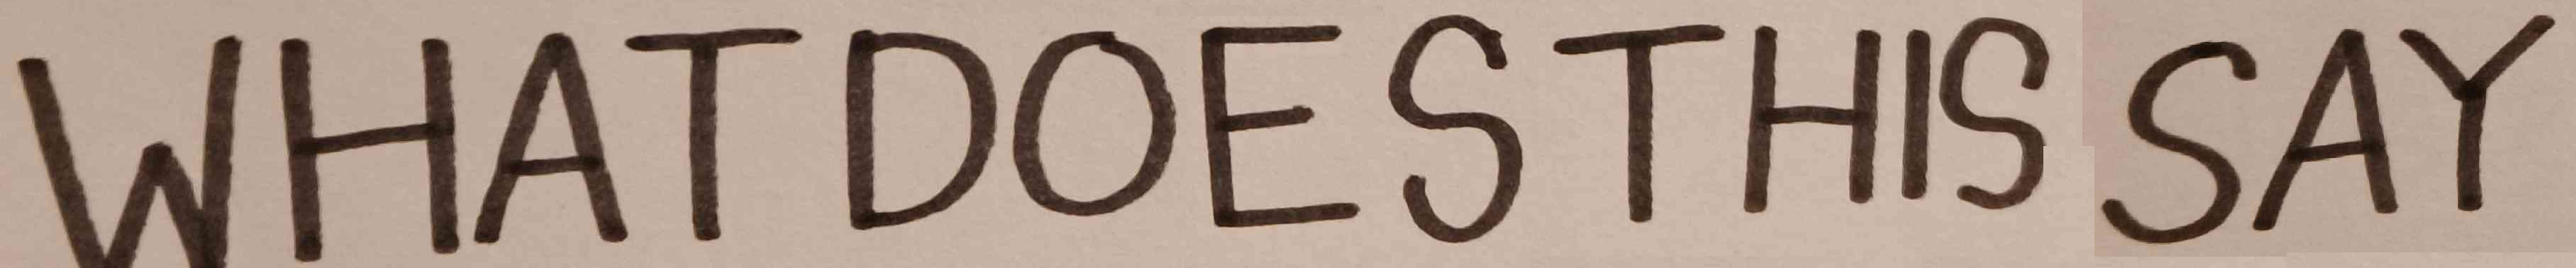 WHAT DOES THIS SAY